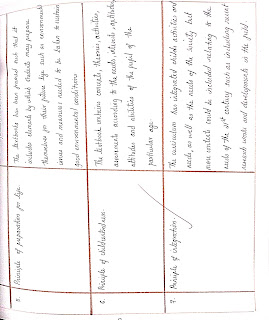 5.
Principle of preparation for life
The textbooks has been framed such that it
includes elements by which students may prepare
themselves for their future life such as environmental
issues and measures needed to be taken to sustain
good environmental conditions
6.
Principle of child centredness
The textbook contains concepts, themes, activities,
assessments according to the needs, interests, aptitudes,
attitudes and abilities of the pupil of the
particular age.
7.
Principle of integration
The curriculum has integrated child's activities and
needs, as well as the needs of the society but
new contents could be included relating to the
needs of the 21st century such as including recent
research works and developments in the field.